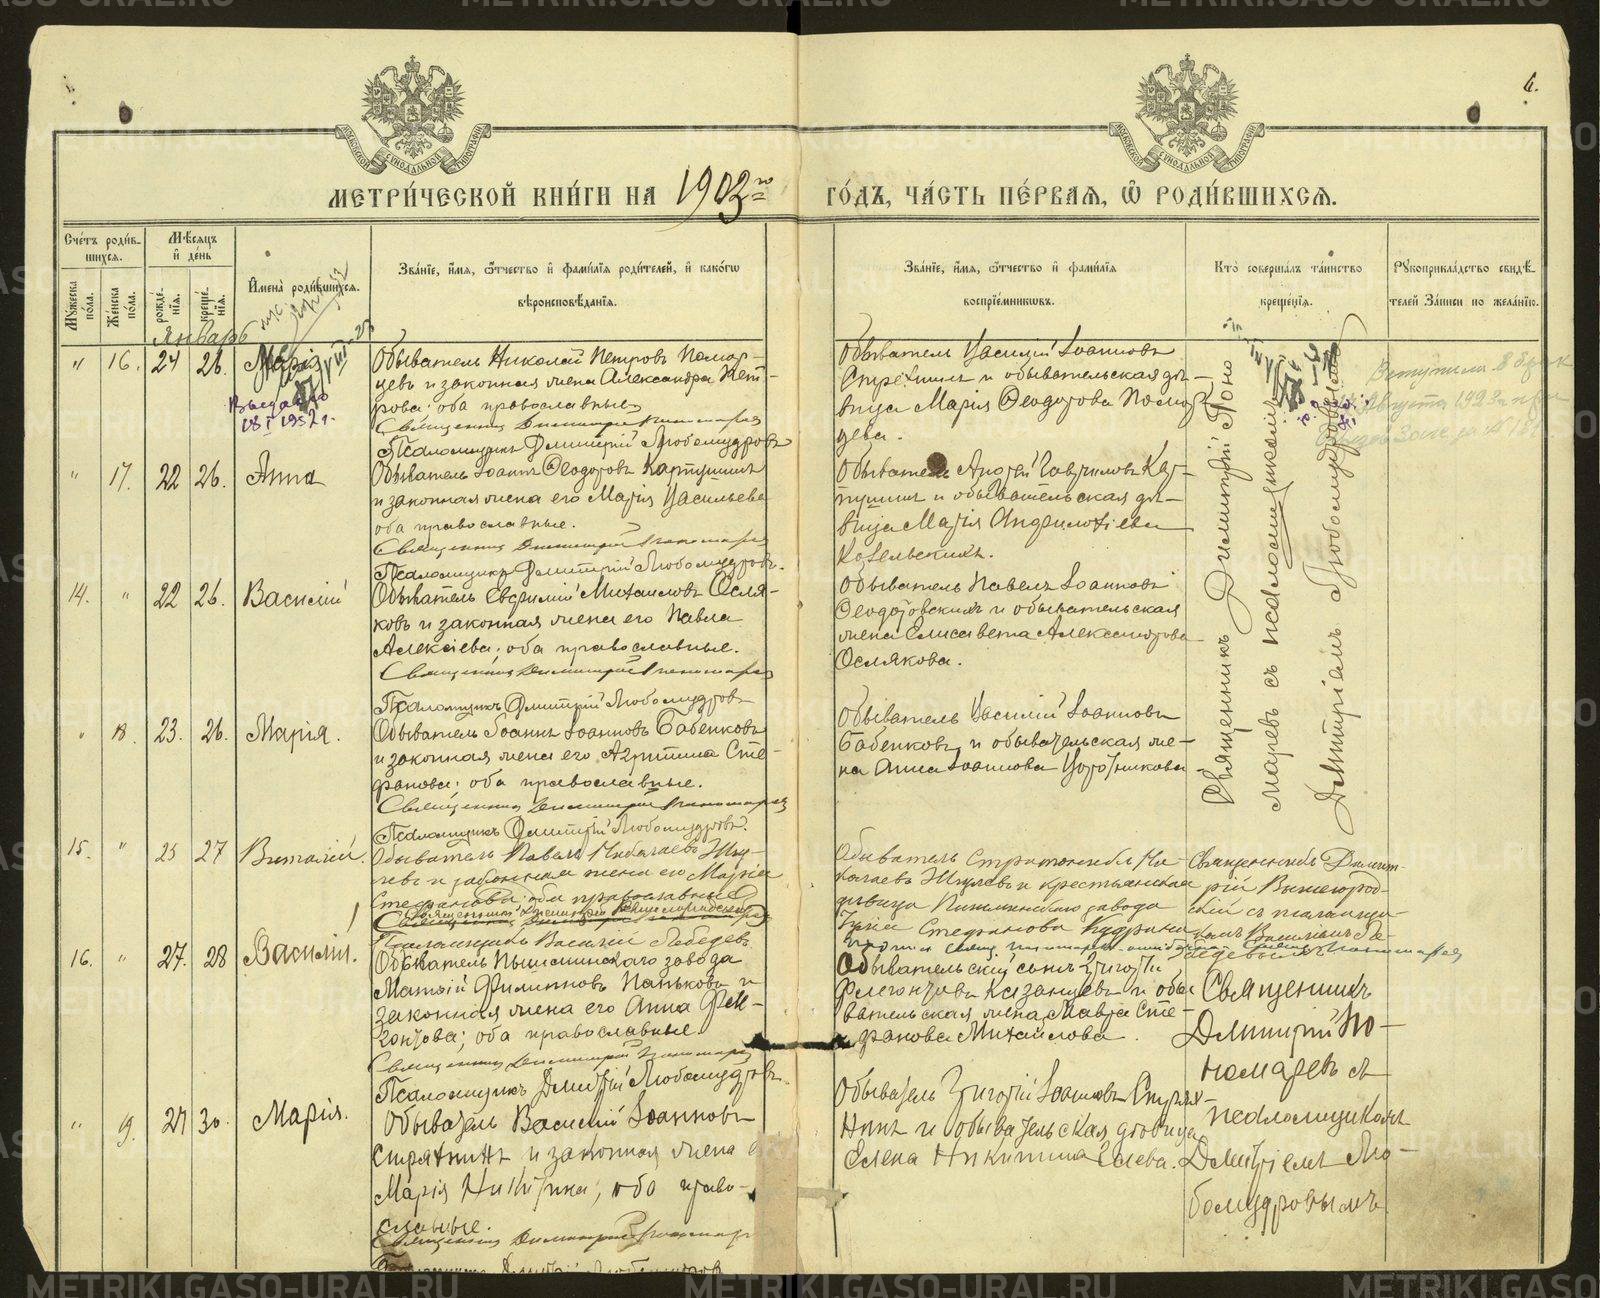 6.
МЕТРИ́ЧЕСКОЙ КНИ́ГИ НА 1903го ГО́ДЪ, ЧА́СТЬ ПЕ́РВАЯ, Ѡ РОДИ́ВШИХСѦ.
Сче́тъ роди́в-
шихсѧ.
Мꙋ́жеска пола.
Же́нска пола.
Мѣ́сѧцъ
и҆ де́нь
рожде́нїѧ.
креще́нїѧ.
И҆мена̀ роди́вшихсѧ.
Зва́нїе, и҆́мѧ, ѻ҆́тчество и҆ фами́лїѧ роди́телей, и҆ како́гѡ
вѣроисповѣ́данїѧ.
Зва́нїе, и҆́мѧ, ѻ҆́тчество и҆ фами́лїѧ
воспрїе́мникѡвъ.
Кто̀ соверша́лъ та́инство
креще́нїѧ.
Рꙋкоприкла́дство свидѣ́-
телей за́писи по жела́нїю.
Январь
" 16. 24 26. Марія
Обыватель Николай Петровъ Помор-
цевъ и законная жена Александра Пет-
рова; оба православные
Священникъ Димитрій Пономаревъ
Псаломщикъ Дмитрій Любомудровъ
Обыватель Василій Іоанновъ
и обывательская дѣ-
вица Марія Ѳеодорова Помор-
цева.
Выдано
Вступила в брак
Августа 1923 г.
" 17. 22 26. Анна
Обыватель Іоаннъ Ѳеодоровъ Картушинъ
и законная жена его Марія Васильева
оба православные.
Священникъ Димитрій Пономаревъ
Псаломщикъ Дмитрій Любомудровъ.
Обыватель Андрей Гавриловъ Кар-
тушинъ и обывательская дѣ-
вица Марія
Козельскихъ.
14. " 22 26. Василій
Обыватель Евфимій Михаиловъ Осля-
ковъ и законная жена его Павла
Алексіева; оба православные.
Священникъ Димитрій Пономаревъ
Псаломщикъ Дмитрій Любомудровъ
Обыватель Павелъ Іоанновъ
Ѳеодоровскихъ и обывательская
жена Елисавета Александрова
Ослякова.
" 18. 23. 26. Марія.
Обыватель Іоаннъ Іоанновъ Бабенковъ
и законная жена его Агриппина Сте-
фанова; оба православные.
Священникъ Димитрій Пономаревъ
Псаломщикъ Дмитрій Любомудровъ.
Обыватель Василій Іоанновъ
Бабенковъ и обывательская же-
на Анна Іоаннова Воротникова
Священникъ Димитрій Поно-
маревъ съ псаломщикомъ
Дмитріемъ Любомудровымъ
15. " 25 27 Виталій.
Обыватель Павелъ Николаевъ Жгу-
левъ и законная жена его Марія
Стефанова; оба православные
Псаломщикъ Василій Лебедевъ
Обыватель Стратоникъ Ни-
колаевъ Жгулевъ и крестьянская
дѣвица Пышминскаго завода
Стефанова Кудрина
Священникъ Димит-
рій Вышегород-
скій съ псаломщи-
комъ Василіемъ Ле-
бедевымъ
16. " 27. 28 Василій.
Обыватель Пышминскаго завода
Матѳій Филипповъ Паньковъ и
законная жена его Анна Фле-
гонтова; оба православные
Священникъ Димитрій Пономаревъ
Псаломщикъ Дмитрій Любомудровъ.
Обывательскій сынъ Григорій
Флегонтовъ Казанцевъ и обы-
вательская жена Мавра Сте-
фанова Михаилова.
Священникъ
Димитрій По-
номаревъ съ
псаломщикомъ
Дмитріемъ Лю-
бомудровымъ
" 19. 27 30. Марія.
Обыватель Василій Іоанновъ
и законная жена его
Марія Никитина; оба право-
славные.
Священникъ Димитрій Пономаревъ
Псаломщикъ Дмитрій Любомудровъ
Обыватель Григорій Іоанновъ
и обывательская дѣвица
Елена Никитина
METRIKI.GASO-URAL.RU